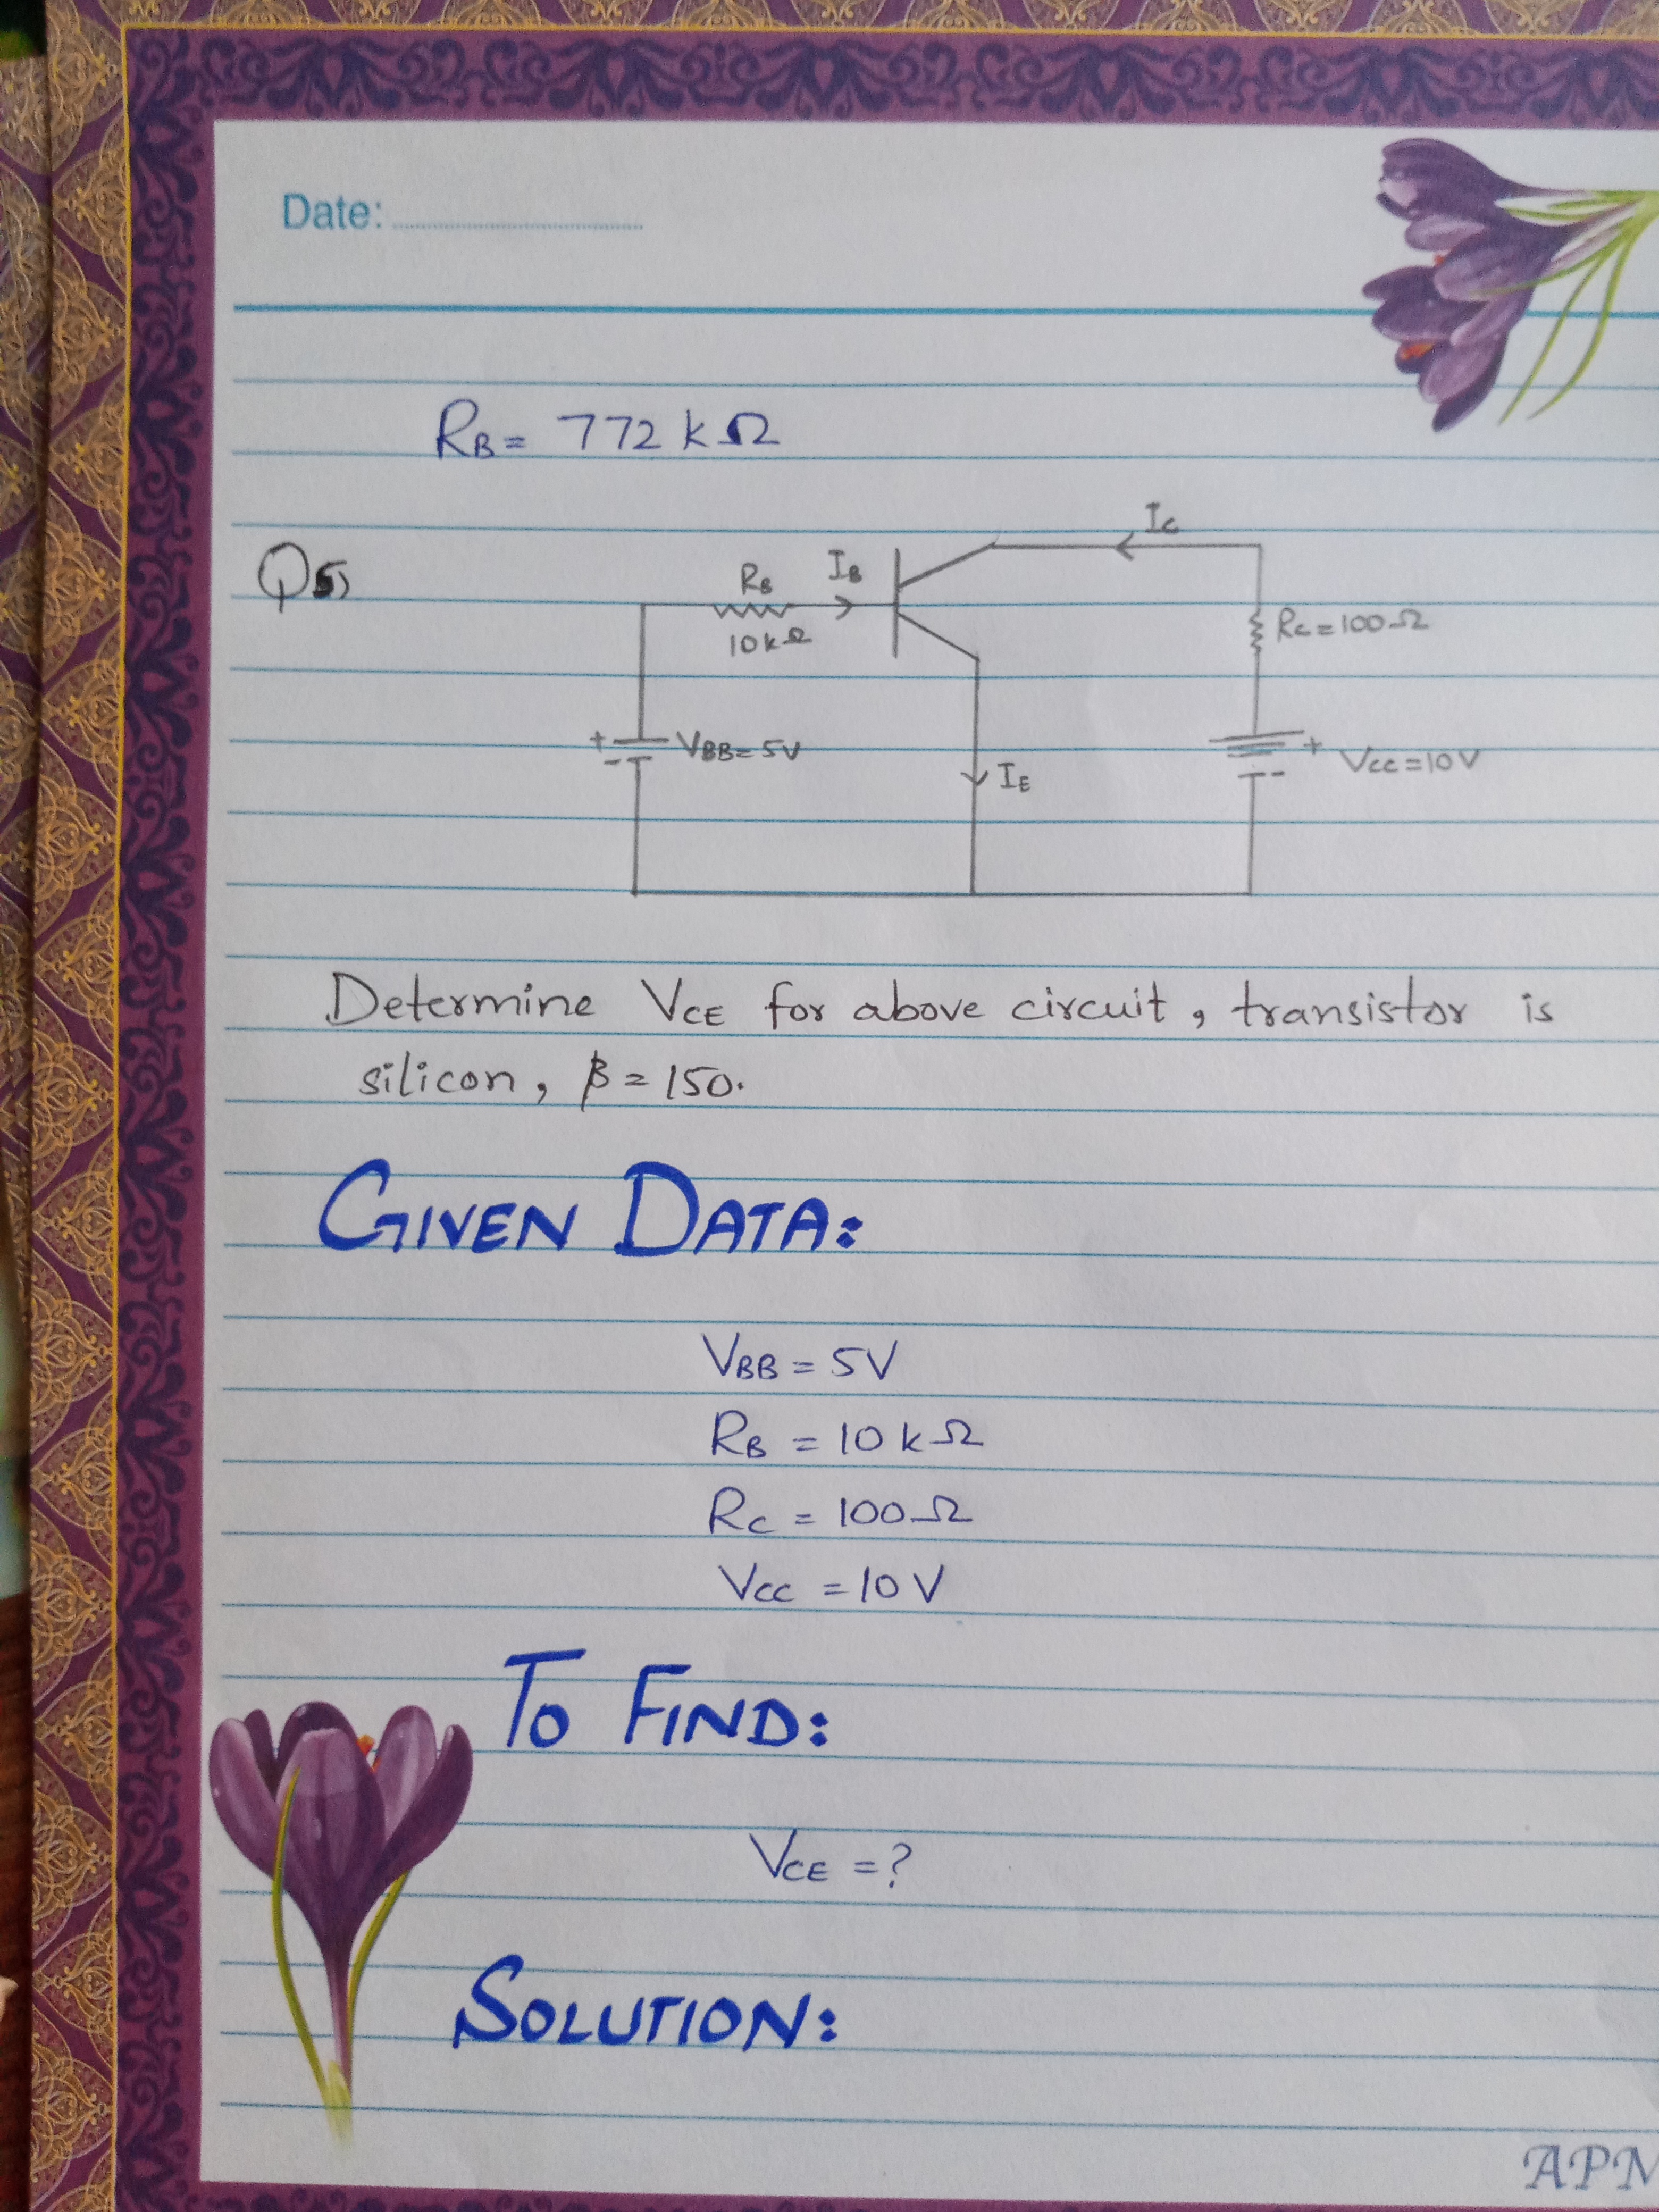 Date:
RB = 772 kΩ
Q5)
IC
RB
IB
10kΩ
RC = 100Ω
+
-
VBB = 5V
IE
+
-
VCC = 10V
Determine VCE for above circuit, transistor is
silicon, β = 150.
GIVEN DATA:
VBB = 5V
RB = 10 kΩ
RC = 100Ω
VCC = 10 V
TO FIND:
VCE = ?
SOLUTION:
APM